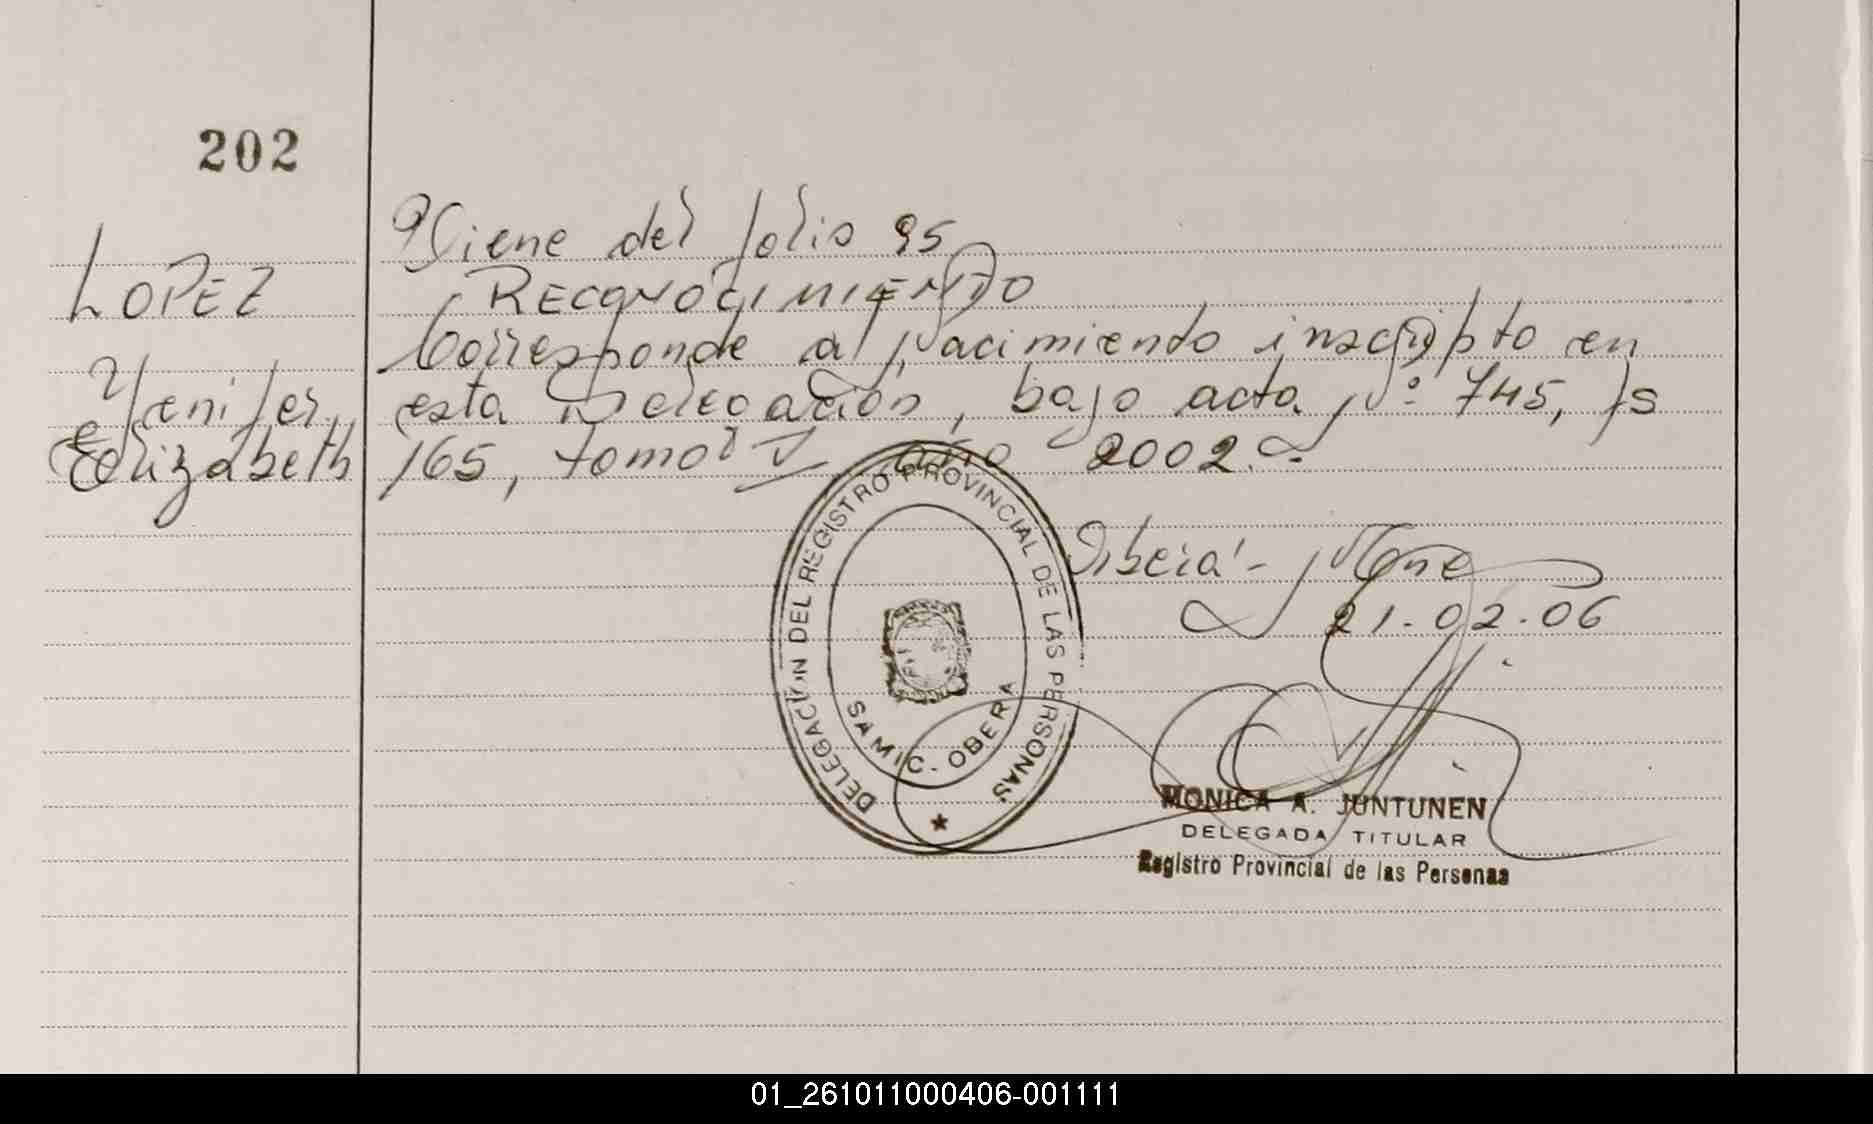 202
LOPEZ
Yenifer
Elizabeth
Viene del folio 95
RECONOCIMIENTO
Corresponde al Nacimiento inscripto en
esta Delegación, bajo acta Nº 745, fs
165, tomo V año 2002.-
Oberá - Mnes
21.02.06
DELEGACIÓN DEL REGISTRO PROVINCIAL DE LAS PERSONAS
SAMIC. OBERA
MONICA A. JUNTUNEN
DELEGADA TITULAR
Registro Provincial de las Personas
01_261011000406-001111